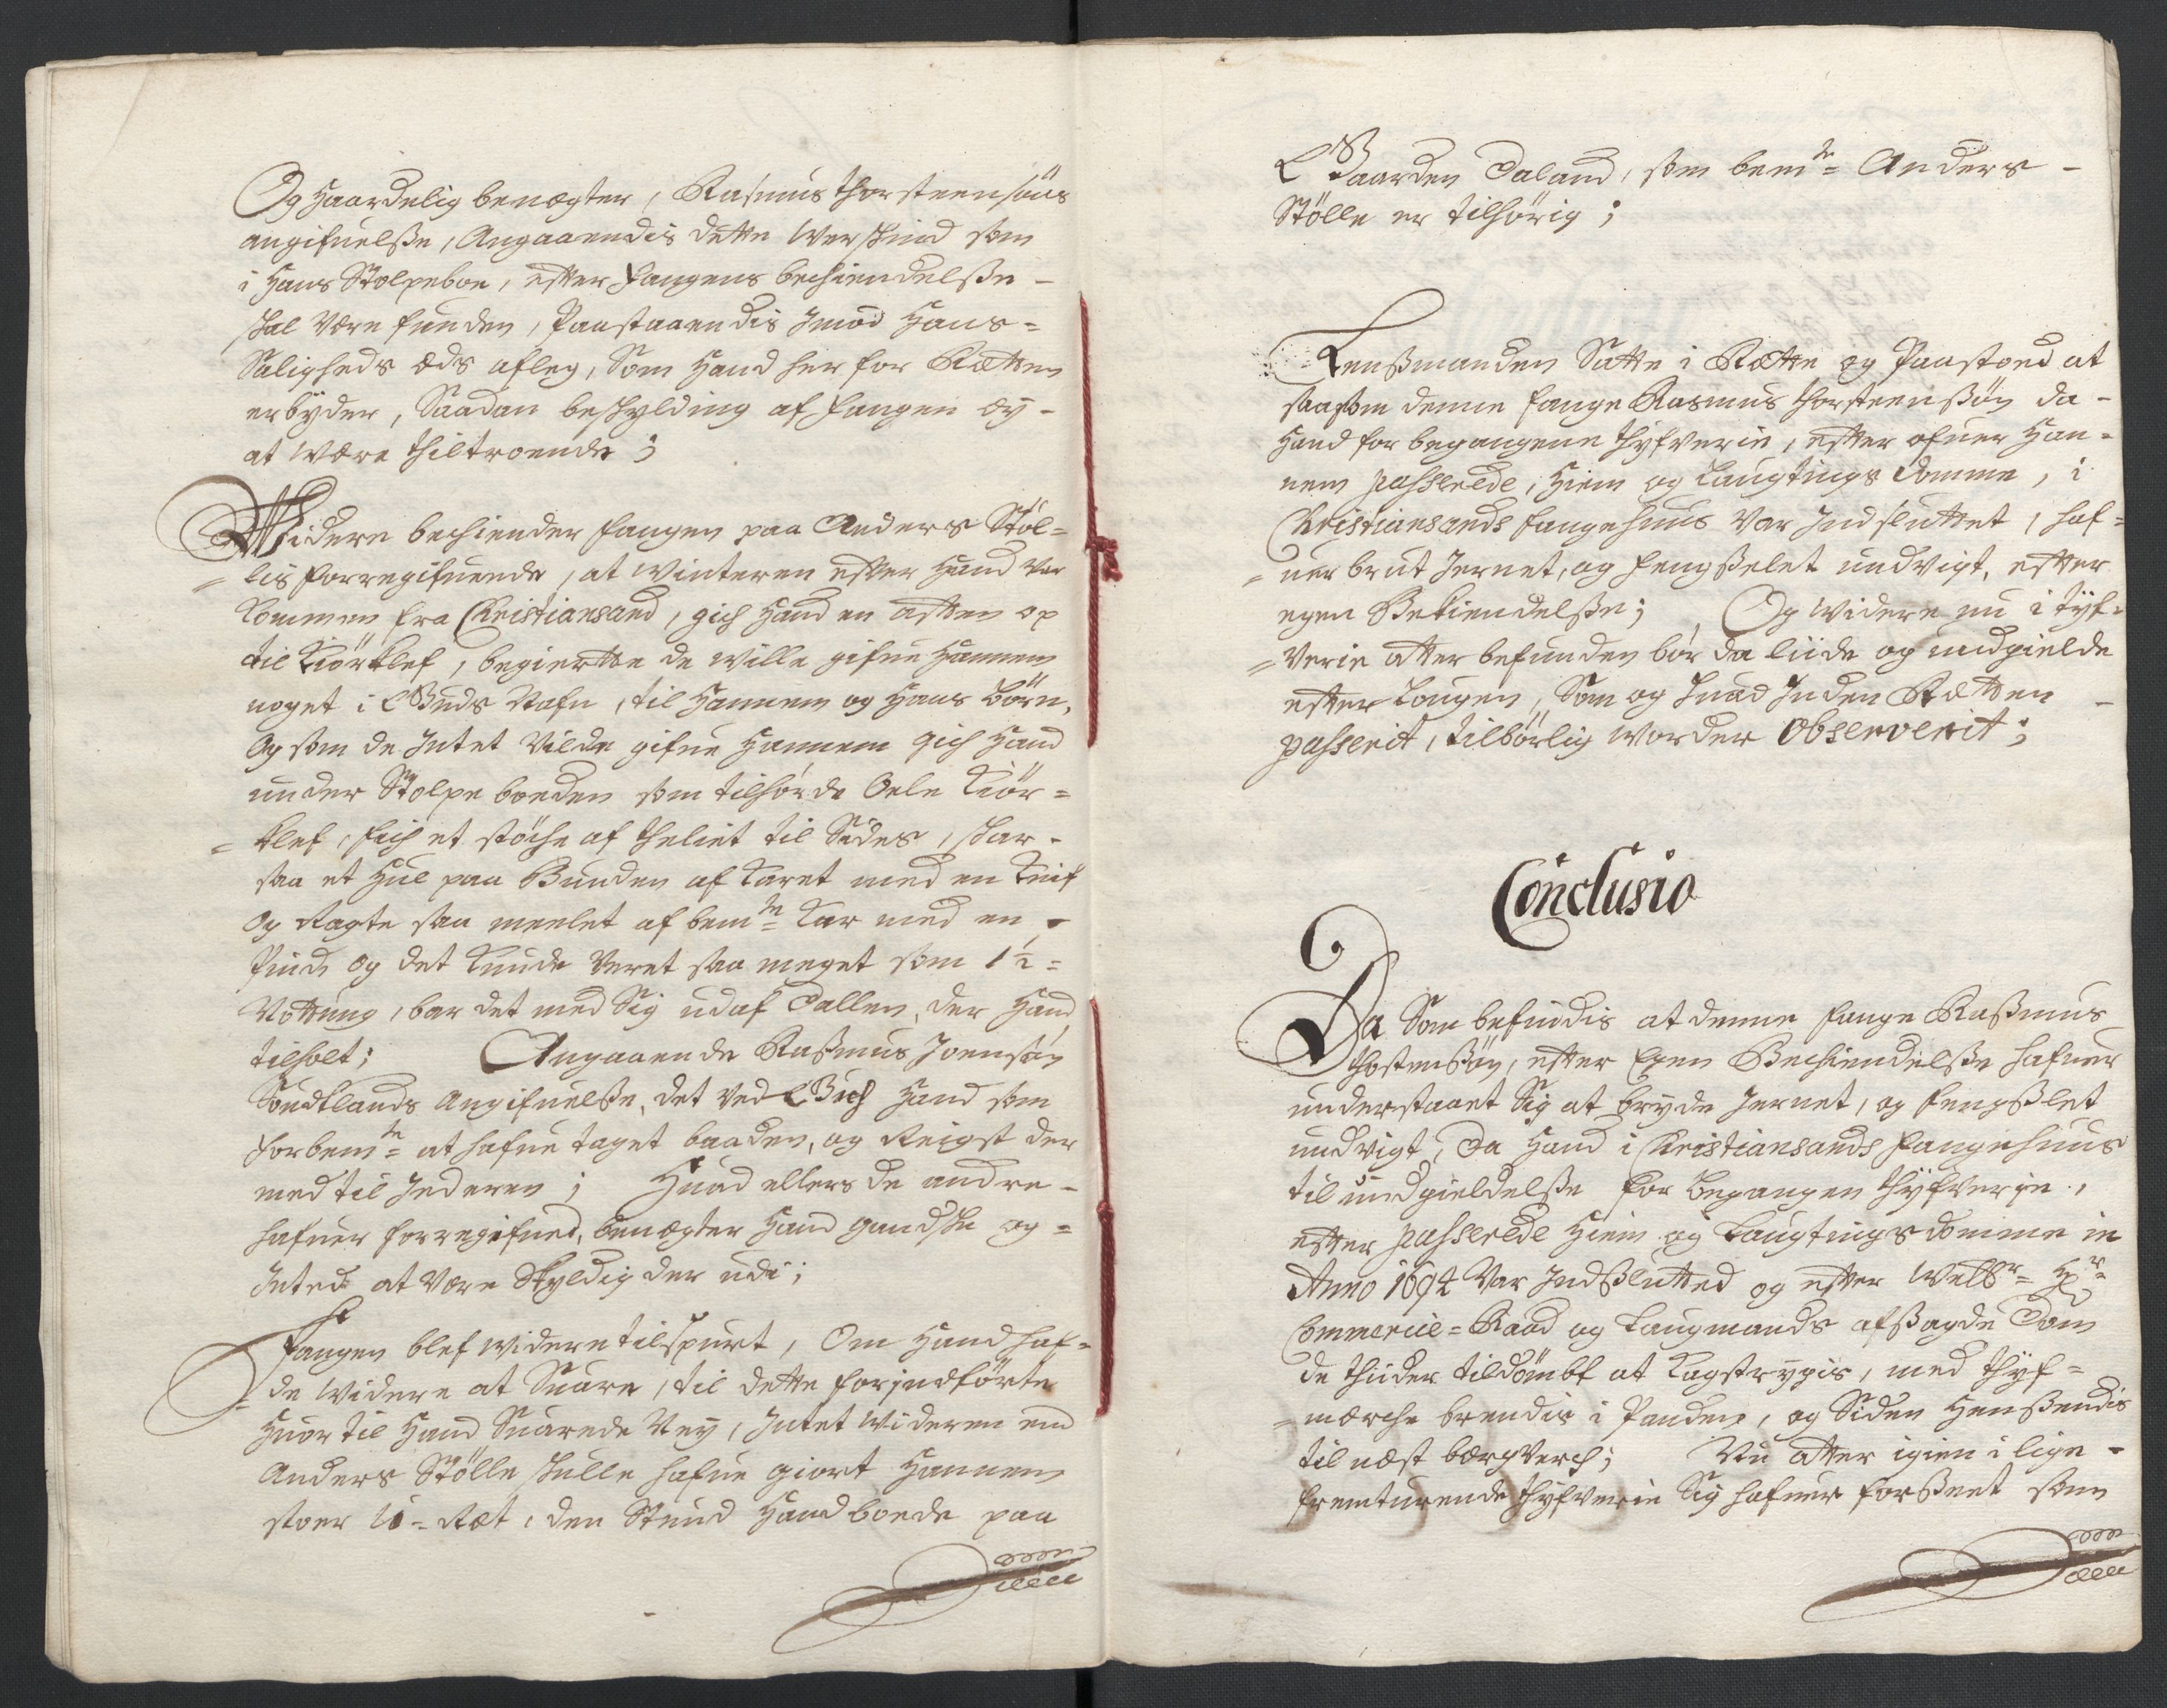 Og Haardelig benægter, Rasmus Thorsteensøns
angifuelße, Angaaendis dette Werskind som
i Hans Stolpeboe, efter Fangens bechiendelße –
skal Være funden, Paastaaendis Imod Hans =
Saligheds Eds afleg, Som Hand her for Rætten
erbÿder, Saadan beskylding af Fangen eÿ –
at Være thiltroende;
Widere bechiender Fangen paa Anders Støl=
=lis forregifuende, at Winteren efter Hand var
kommen fra Christiansand, gich Hand en afften op
til Kiørklef, begierte de wille gifue Hannem
noget i Guds Nafn, til Hannem og Hans børn,
Og som de Intet Vilde gifue Hannem gich Hand
under Stolpe boeden som tilhørde Oele Kiør=
=klef, fich et støche af theliet til Sides, skar –
saa et Hul paa Bunden af Karet med en Knif
Og Ragte saa meelet af bemte Kar med en –
Pind, og det kunde Veret saa meget som 1½ =
Vøttung, bar det med Sig udaf Dallen, der Hand
tilholt; Angaaende Raßmus Joensøn
Sundtlands Angifuelße, det ved Gich Hand som
forbemte at hafue taget baaden, og Reigst der
med til Jederen; Huad ellers de andre –
hafuer forregifued, benægter Hand gandske og =
Inted at Være Skyldig der udi;
Fangen blef widere tilspurt, Om Hand haf=
=de widere at Suare, til dette forindførte
Huortil Hand Suarede Neÿ, Intet Wideren end
Anders Stølle skulle hafue giort Hannem
stoer U=Ræt, den Stund Hand boede paa
Gaarden Daland, som bemte Anders –
Stølle er tilhørig;
Lenßmanden Satte i Rætte og Paastoed at
saasom denne fange Rasmus Thorsteenßøn da –
Hand for begangene thyfverie, efter ofuer Han=
nem passerede, Hiem og Laugtings Domme, i
Christiansands fangehuus Var Indsluttet, haf=
=uer brut Jernet, og fengßelet undvigt, efter
egen Bekiendelße; Og Widere nu i tÿf=
=verie atter befunden bør da liide og undgielde
efter Lougen, Som og huad Inden Rætten –
passerit, tilbørlig worder Observerit;
Conclusio
Da Som befindis at denne fange Raßmus
Thostenßøn, efter Egen Bechiendelße hafuer
understaaet Sig at brÿde Jernet, og fengßlet
undvigt, Da Hand i Christiansands fangehuus
til undgieldelße for Begangen thÿfverie,
efter passerede Hiem og Laugtings domme in
Anno 1692 Var Indßlutted og efter Welbr= Hr=
Commercie=Raad og Laugmands afßagde Dom
de thiider tildømbt at Kagstrygis, med thÿf=
=mærche brendis i Panden, og Siden Henßendis
til næst bærgverch; Nu atter igien i lige –
fremturende thÿfverie Sig hafuer forßeet som